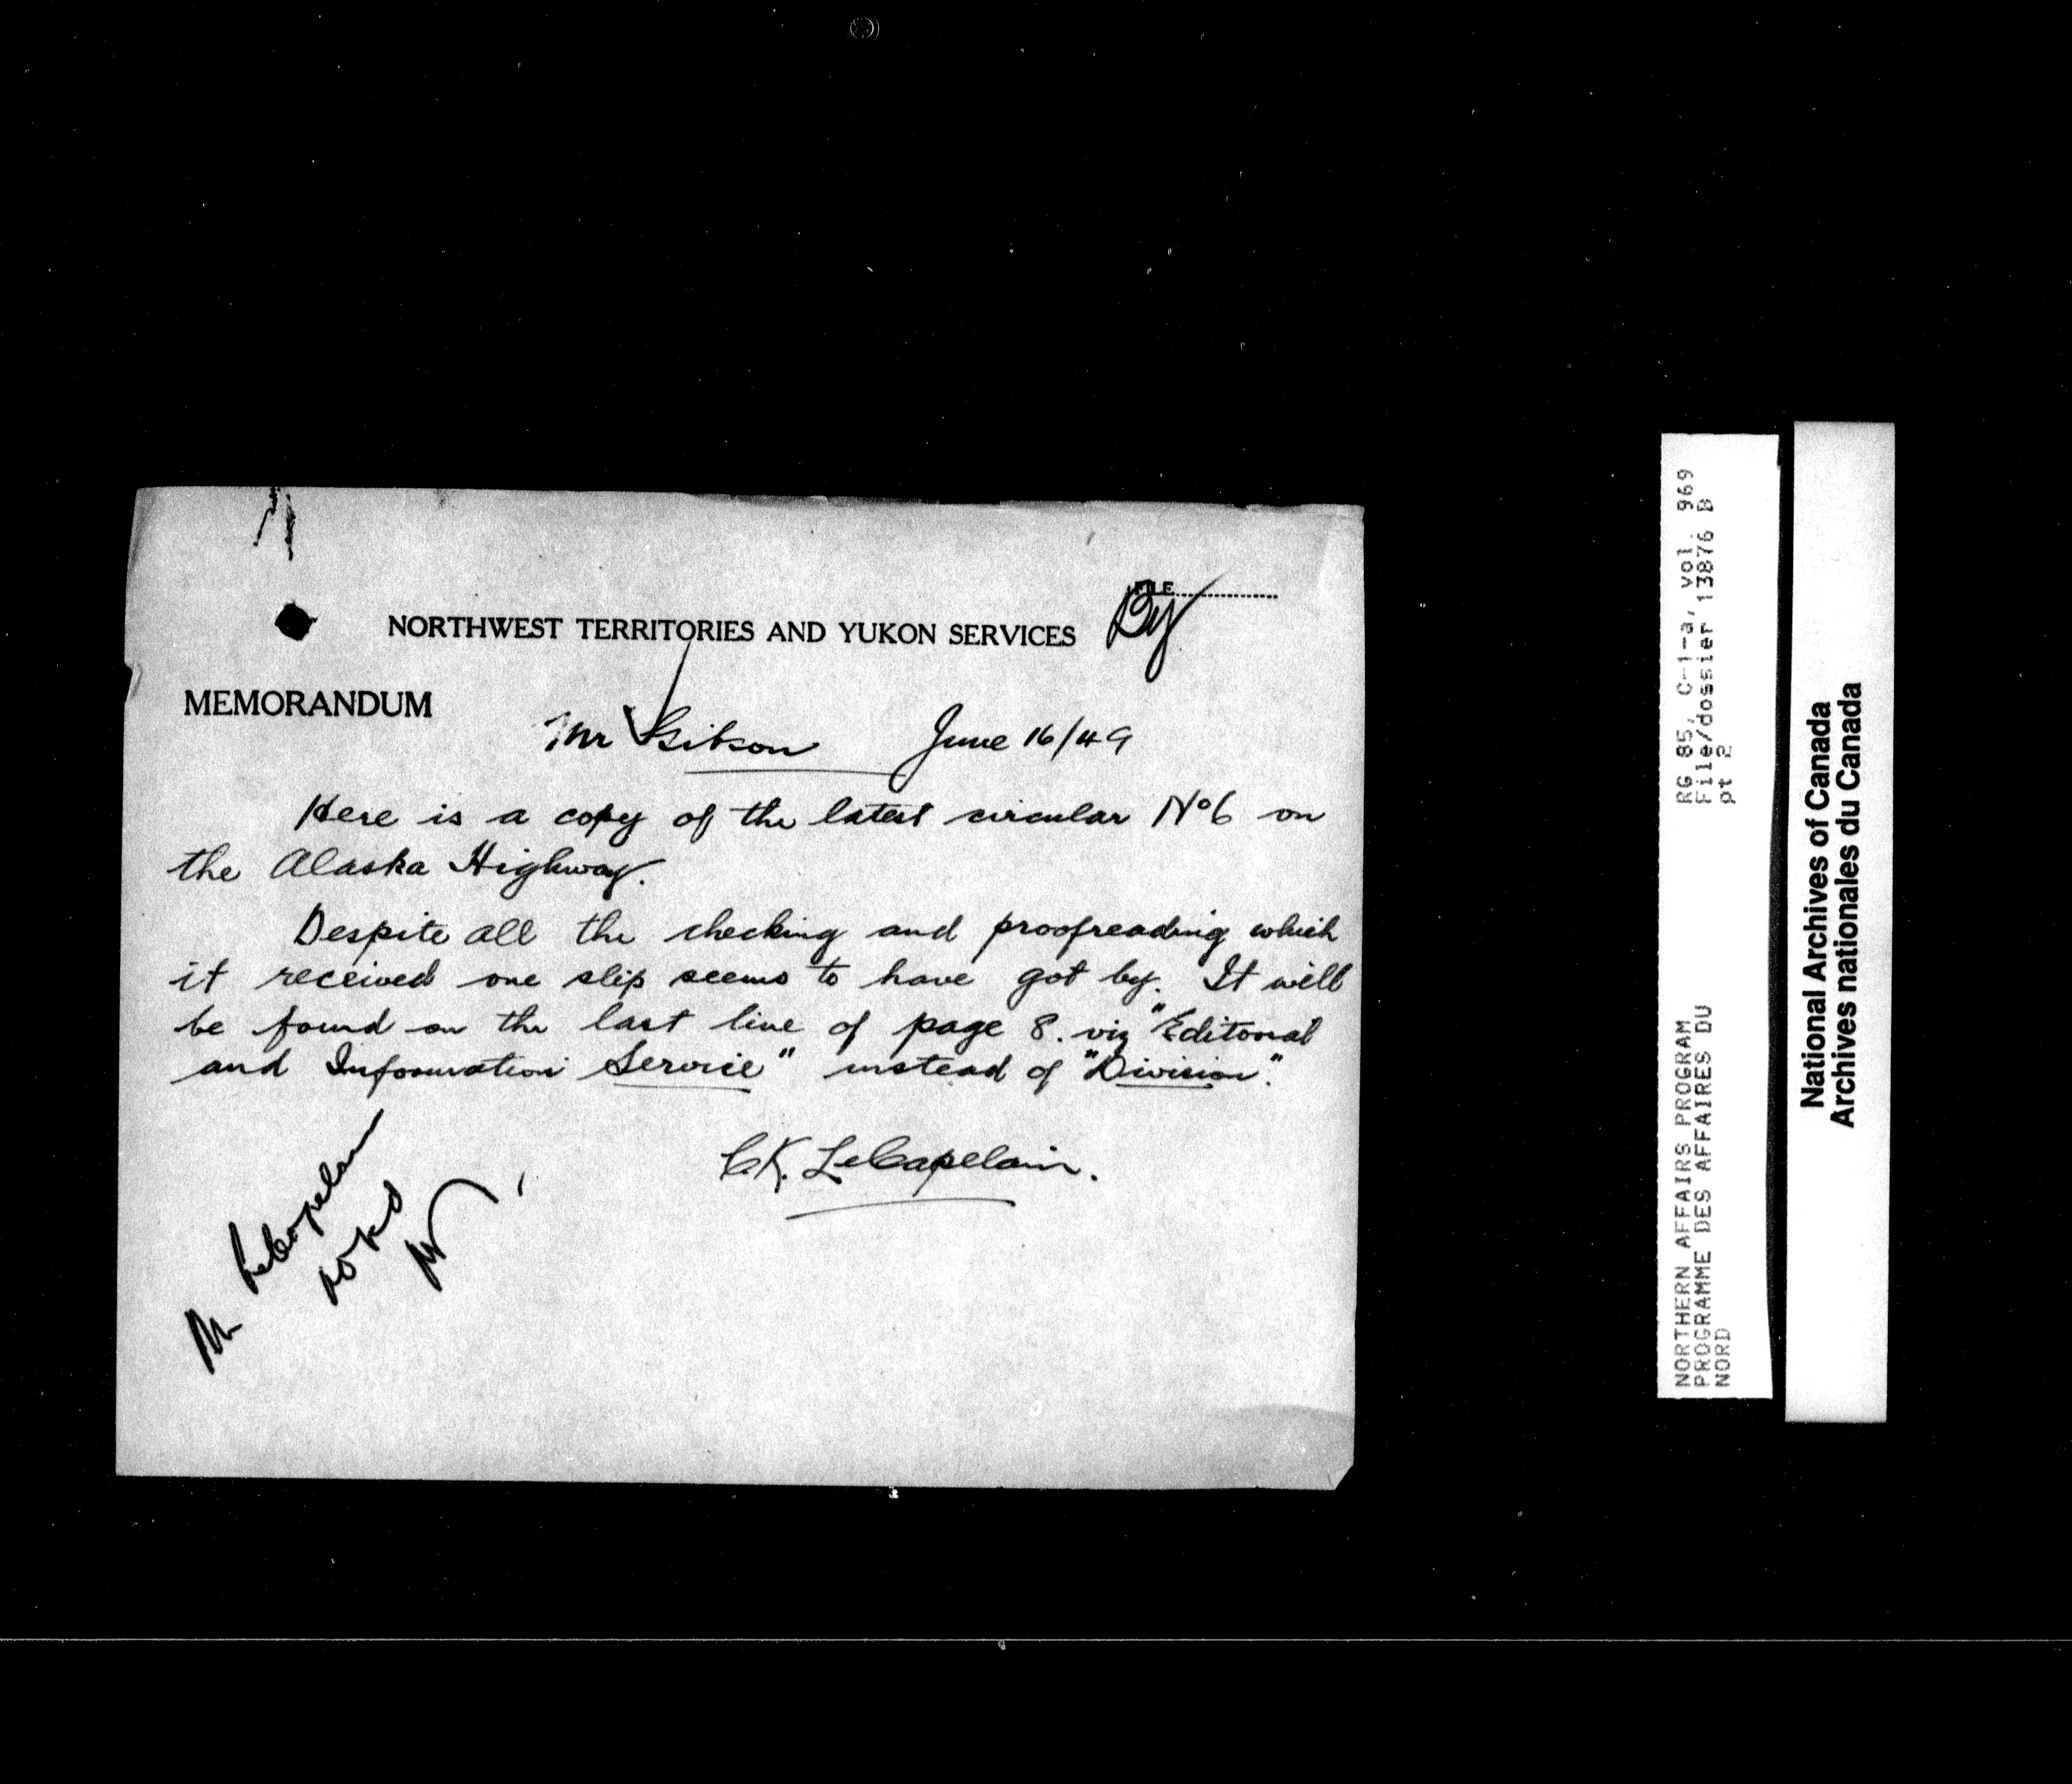 FILE
By
NORTHWEST TERRITORIES AND YUKON SERVICES
MEMORANDUM
Mr Gibson June 16/49
Here is a copy of the latest circular Nº6 on
the Alaska Highway.
Despite all the checking and proofreading which
it received one slip seems to have got by. It will
be found on the last line of page 8. viz "Editorial
and Information Service" instead of "Division".
C.K. LeCapelain.
Mr LeCapelain
noted
RG 85, C-1-a, vol. 969
File/dossier 13876 B
pt 2
NORTHERN AFFAIRS PROGRAM
PROGRAMME DES AFFAIRES DU
NORD
National Archives of Canada
Archives nationales du Canada